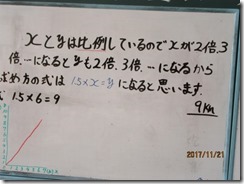 xとyは比例しているのでxが2倍、3
倍、…になるとyも2倍、3倍、…になるから
求め方の式は 1.5×x=y になると思います。
式 1.5×6=9
9km
2017/11/21